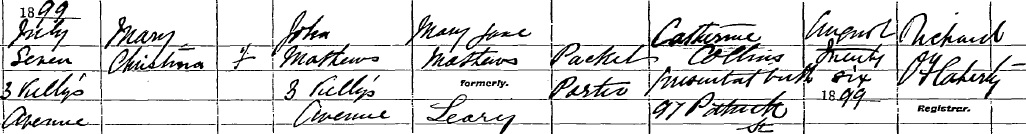 1899
July Mary John Mary Jane Catherine August Richard
Seven Christina f Mathews Mathews Packet Collins Twenty O'Flaherty
3 Killy's 3 Killy's formerly. Porter Present at birth six
Avenue Avenue Leary 97 Patrick 1899 Registrar.
St